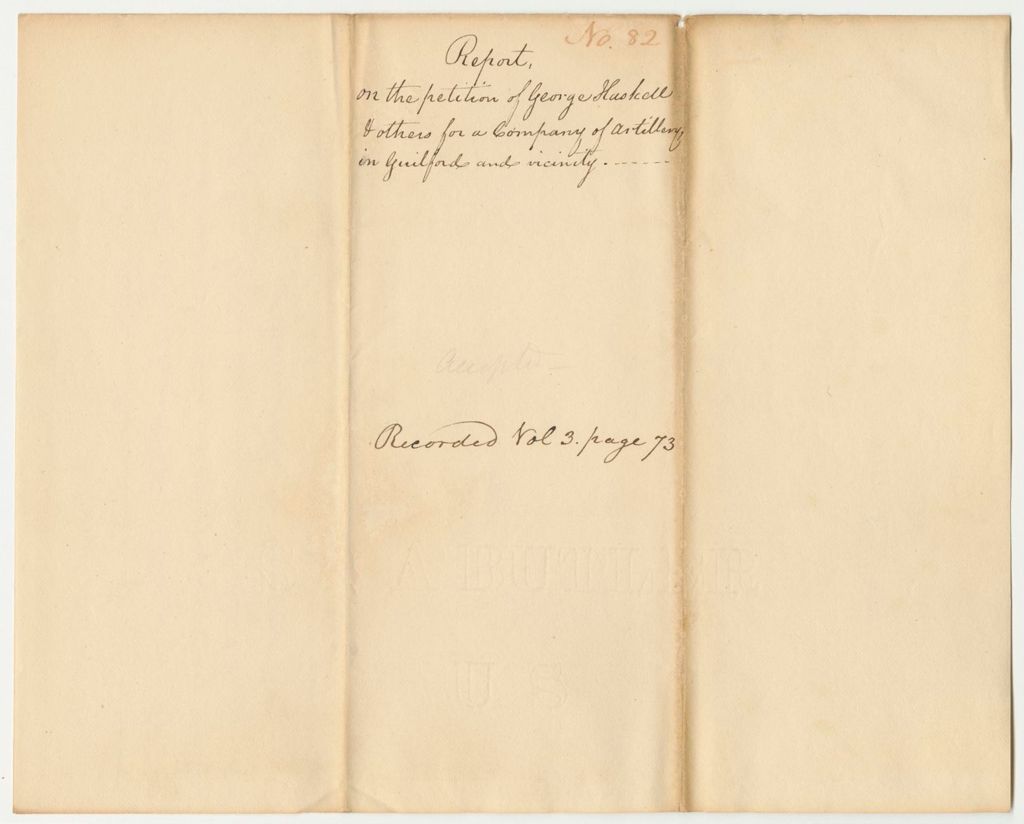 No. 82
Report,
on the petition of George Haskell
& others for a Company of Artillery
in Guilford and vicinity. - - - - - -
Accepted -
Recorded Vol 3. page 73
S & A BUTLER
U S